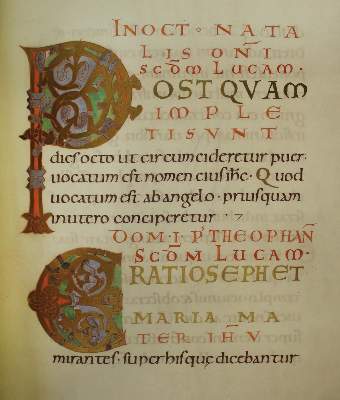 IN OCT · NATA
LIS DÑI
SCDM LUCAM ·
POSTQVAM
IMPLE
TI SUNT
dies octo ut circumcideretur puer·
vocatum est nomen eius ihc · Quod
vocatum est ab angelo · priusquam
in utero conciperetur · 7
DOM · I P' THEOPHAÑ
SCDM LUCAM ·
ERAT IOSEPH ET
MARIA MA
TER IHV
mirantes · super his quę dicebantur